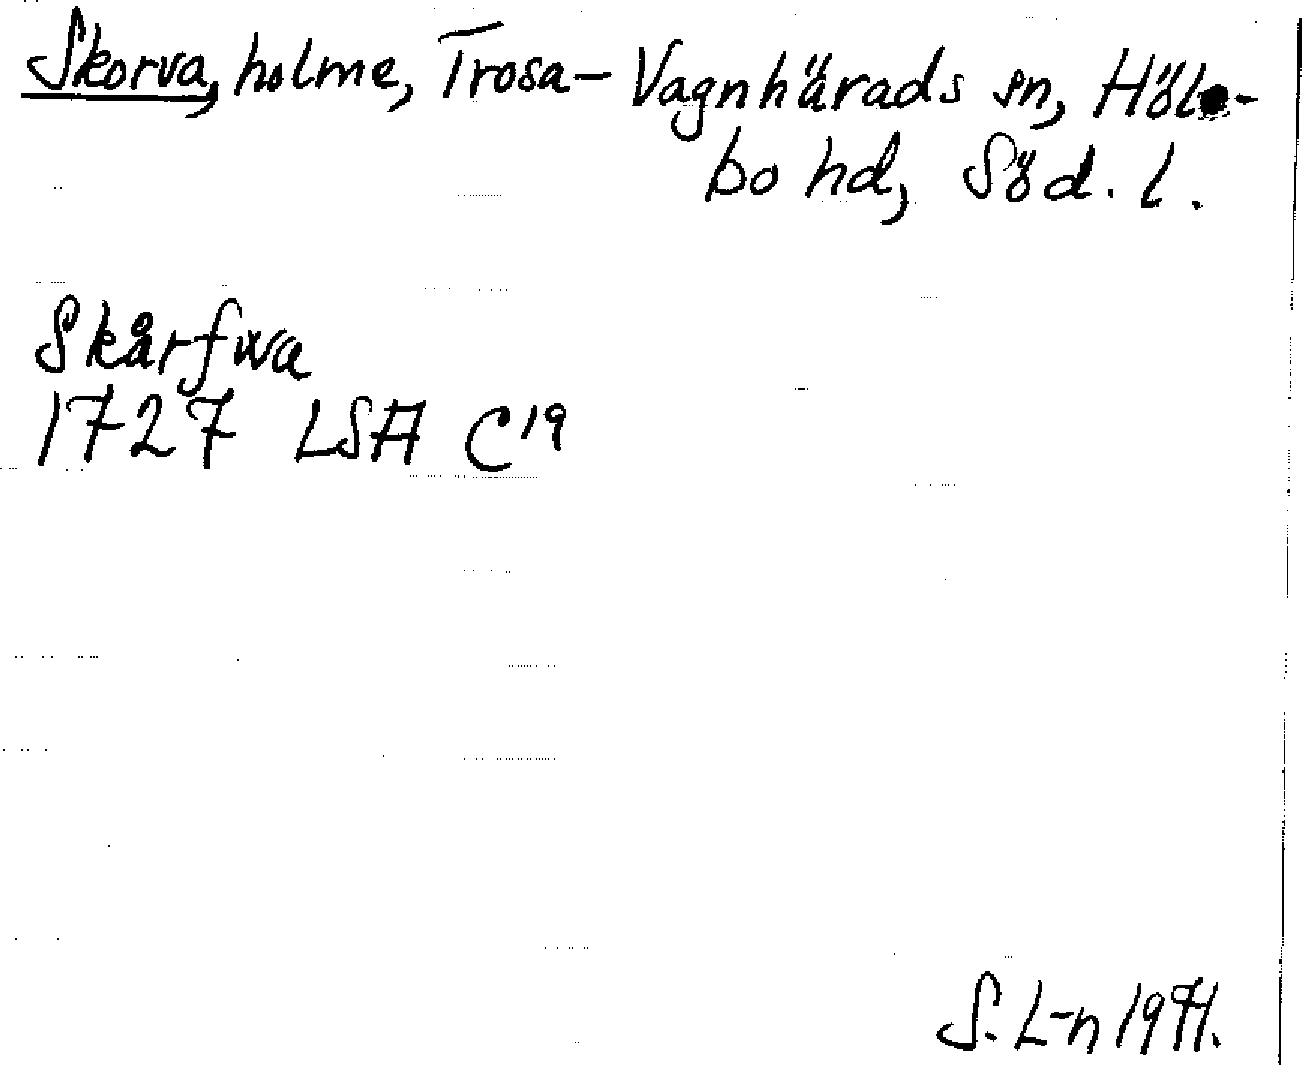 Skorva, holme, Trosa-Vagnhärads sn, Höl-
bo hd, Söd. l.
Skårfwa
1727 LSA C19
S. L-n 1971.